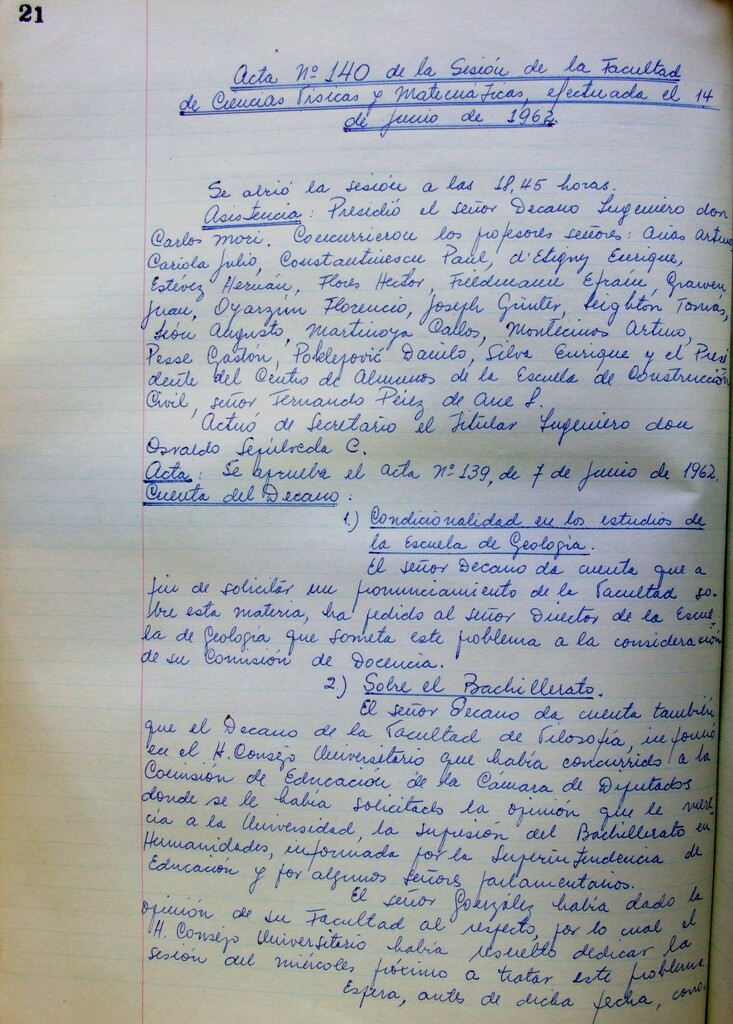 21
Acta Nº 140 de la Sesión de la Facultad
de Ciencias Físicas y Matemáticas, efectuada el 14
de junio de 1962.
Se abrió la sesión a las 18,45 horas.
Asistencia: Presidió el señor Decano Ingeniero don
Carlos Mori. Concurrieron los profesores señores: Arias Arturo,
Cariola Julio, Constantinescu Paul, d'Etigny Enrique,
Estévez Hernán, Flores Hector, Friedmann Efraín, Grawen
Juan, Oyarzún Florencio, Joseph Günter, Leighton Tomás,
León Augusto, Martinoya Carlos, Montecinos Arturo,
Pesse Gastón, Poklepović Danilo, Silva Enrique y el Presi
dente del Centro de Alumnos de la Escuela de Construcción
Civil, señor Fernando Pérez de Arce L.
Actuó de Secretario el Titular Ingeniero don
Osvaldo Sepúlveda C.
Acta: Se aprueba el acta Nº 139, de 7 de junio de 1962.
Cuenta del Decano:
1.) Condicionalidad en los estudios de
la Escuela de Geología.
El señor Decano da cuenta que a
fin de solicitar un pronunciamiento de la Facultad so-
bre esta materia, ha pedido al señor Director de la Escue-
la de Geología que someta este problema a la consideración
de su Comisión de Docencia.
2.) Sobre el Bachillerato.
El señor Decano da cuenta también
que el Decano de la Facultad de Filosofía, informó
en el H. Consejo Universitario que había concurrido a la
Comisión de Educación de la Cámara de Diputados
donde se le había solicitado la opinión que le mere-
cía a la Universidad, la supresión del Bachillerato en
Humanidades, informada por la Superintendencia de
Educación y por algunos señores parlamentarios.
El señor González había dado la
opinión de su Facultad al respecto, por lo cual el
H. Consejo Universitario había resuelto dedicar la
sesión del miércoles próximo a tratar este problema.
Espera, antes de dicha fecha, cono-